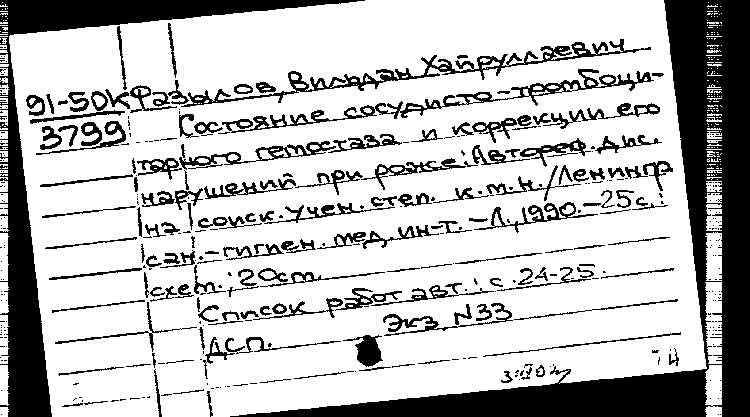 91-5ДК Фазылов, Вильдан Хайруллаевич
3799 Состояние сосудисто-тромбоци-
тарного гемостаза и коррекции его
нарушений при роже: Автореф. дис.
на соиск. учен. степ. к.м.н./Ленингр
сан.-гигиен. мед. ин-т. -Л., 1990.-25с.:
схем.; 20см.
Список работ авт.: с. 24-25.
ДСП. Экз N33